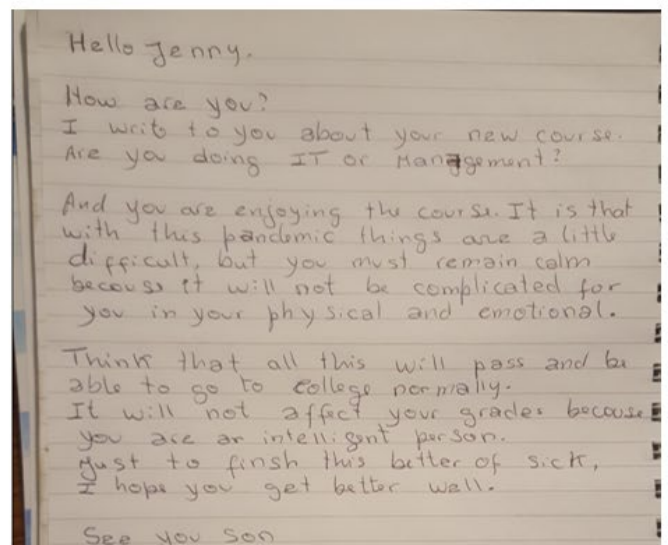 Hello Jenny.
How are you?
I write to you about your new course.
Are you doing IT or Management?
And you are enjoying the course. It is that
with this pandemic things are a little
difficult, but you must remain calm
becouse it will not be complicated for
you in your physical and emotional.
Think that all this will pass and be
able to go to college normally.
It will not affect your grades becouse
you are an intelligent person.
Just to finsh this better of sick,
I hope you get better well.
See you son